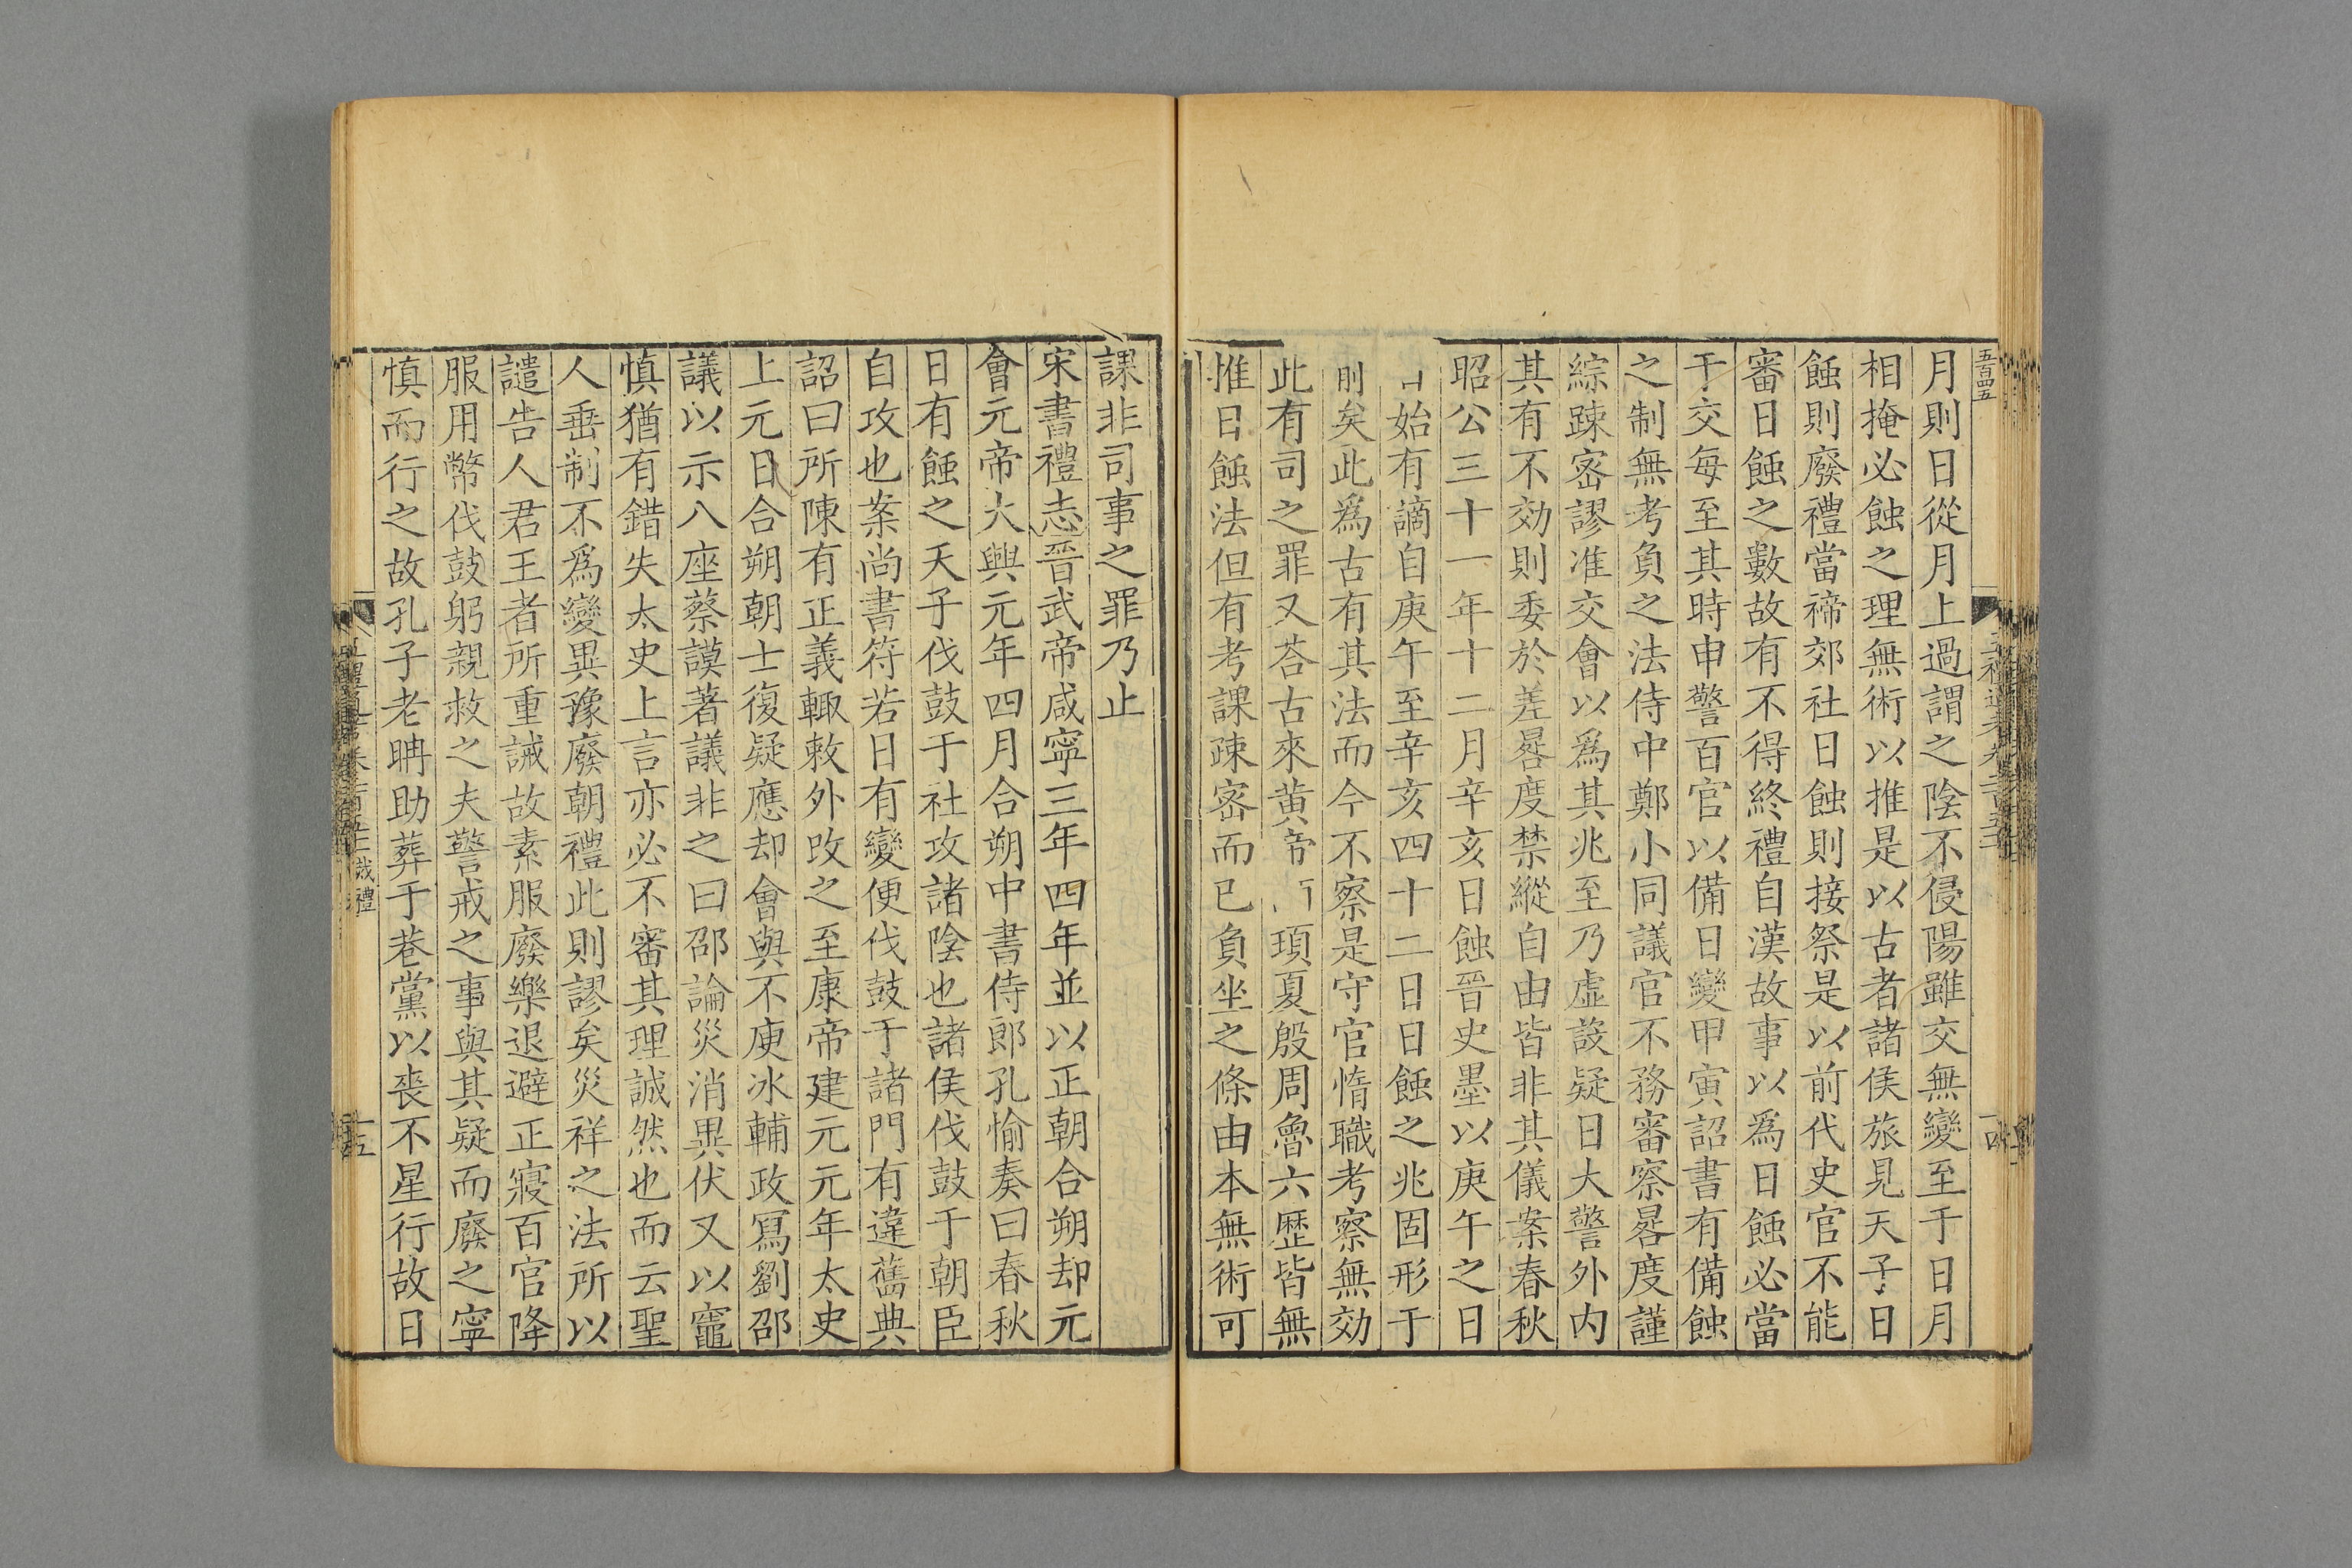 五百四五
月則日從月上過謂之陰不侵陽雖交無變至于日月
相掩必蝕之理無術以推是以古者諸侯旅見天子日
蝕則廢禮當禘郊社日蝕則接祭是以前代史官不能
審日蝕之數故有不得終禮自漢故事以爲日蝕必當
于交每至其時申警百官以備日變甲寅詔書有備蝕
之制無考負之法侍中鄭小同議官不務審察晷度謹
綜疎宻謬准交會以爲其兆至乃虛設疑日大警外内
其有不効則委於差晷度禁縱自由皆非其儀案春秋
昭公三十一年十二月辛亥日蝕晉史墨以庚午之日
日始有謫自庚午至辛亥四十二日日蝕之兆固形于
前矣此爲古有其法而今不察是守官惰職考察無効
此有司之罪又荅古來黄帝頊夏殷周魯六歴皆無
推日蝕法但有考課疎宻而已負坐之條由本無術可
課非司事之罪乃止
宋書禮志晉武帝咸寧三年四年並以正朝合朔却元
會元帝大興元年四月合朔中書侍郎孔愉奏曰春秋
日有蝕之天子伐鼓于社攻諸陰也諸侯伐鼓于朝臣
自攻也案尚書符若日有變便伐鼓于諸門有違舊典
詔曰所陳有正義輙敕外改之至康帝建元元年太史
上元日合朔朝士復疑應却會與不庾冰輔政冩劉邵
議以示八座蔡謨著議非之曰邵論災消異伏又以竈
慎猶有錯失太史上言亦必不審其理誠然也而云聖
人垂制不爲變異豫廢朝禮此則謬矣災祥之法所以
譴告人君王者所重誡故素服廢樂退避正寢百官降
服用幣伐鼓躬親救之夫警戒之事與其疑而廢之寧
慎而行之故孔子老聃助葬于巷黨以䘮不星行故日